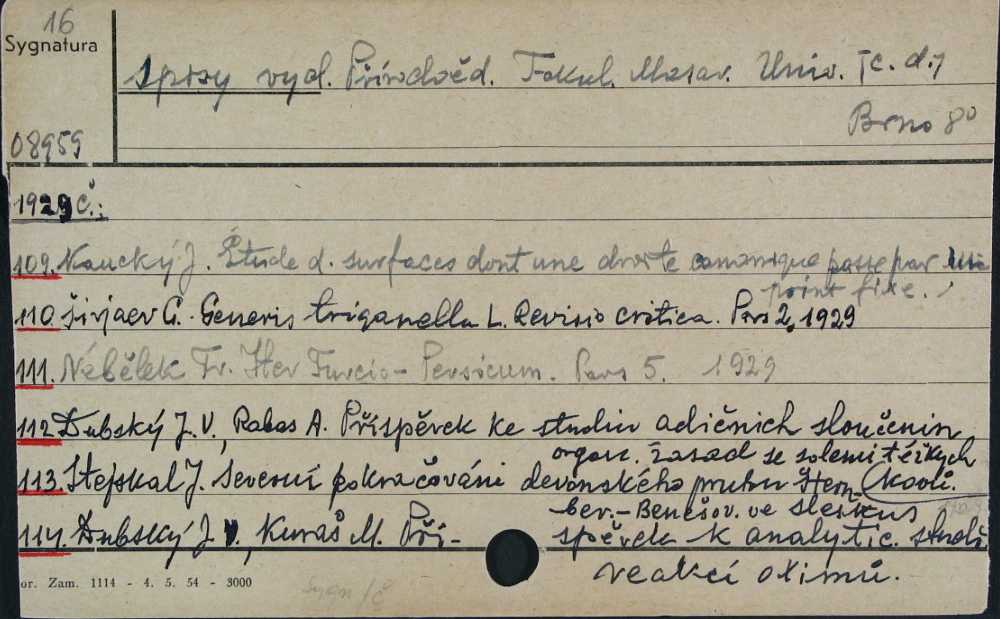 16
Sygnatura
Spisy vyd. Přírodověd. Fakul. Masar. Univ. [c. d.]
Brno 8°
08959
1929 č.:
109. Kaucký J. Étude d. surfaces dont une droite canonique passe par un
point fixe.
110 Širjaev G. Generis trigonella L. Revisio critica. Pars 2, 1929
111. Nábělek Fr. Iter Turcico-Persicum. Pars 5. 1929
112 Dubský J. V., Rabas A. Příspěvek ke studiu adičních sloučenin
organ. zásad se solemi těžkých
kovů.
113. Stejskal J. Severní pokračování devonského pruhu Hern-
ber.- Benešov. ve
114. Dubský J. V., Kuraš M. Pří-
spěvek k analytic. studii
reakcí oximů.
or. Zam. 1114 - 4. 5. 54 - 3000